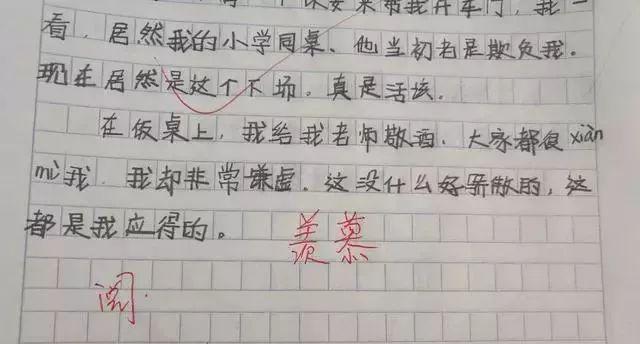 个保安来帮我开车门,我一
看,居然我的小学同桌、他当初老是欺负我。
现在居然是这个下场,真是活该.
在饭桌上,我给我老师敬酒.大家都很xiàn
mì我.我却非常嫌虚.这没什么好骄傲的,这
都是我应得的。
羡慕
阅.